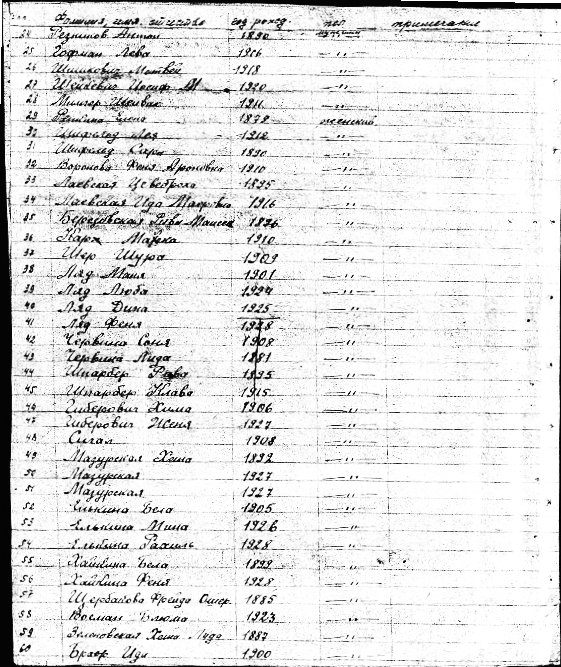 Фамилия, имя, отчество год рожд. пол примечание
24 Резников Антон 1890 мужской
25 Гофман Лева 1926 —"—
26 Шишкович Матвей 1918 —"—
27 Иосиф М 1920 —"—
28 1911 —"—
29 Елена 1878 женский
30 Лея 1912 —"—
31 Сара 1890 —"—
32 Воронова Феня Ароновна 1910 —"—
33 Лаевская 1895 —"—
34 Маевская Ида 1916 —"—
35 Рива Моисеев 1896 —"—
36 Карп Манька 1910 —"—
37 Шер Шура 1909 —"—
38 Ляд Маня 1901 —"—
39 Ляд Люба 1924 —"—
40 Ляд Дина 1925 —"—
41 Ляд Феня 1928 —"—
42 Червина Соня 1908 —"—
43 Червина Лида 1881 —"—
44 Шпарбер Рава 1895 —"—
45 Шпарбер Клава 1915 —"—
46 Гиберович Хима 1906 —"—
47 Гиберович Женя 1927 —"—
48 Сигал 1908 —"—
49 Мазурская Хана 1892 —"—
50 Мазурская 1927 —"—
51 Мазурская 1927 —"—
52 Елькина Бела 1905 —"—
53 Елькина Мина 1926 —"—
54 Елькина Рахиль 1928 —"—
55 Хайкина Бела 1899 —"—
56 Хайкина Феня 1928 —"—
57 Щербакова Фрейда 1885 —"—
58 Восман Блюма 1923 —"—
59 Хана 1887 —"—
60 Ида 1900 —"—